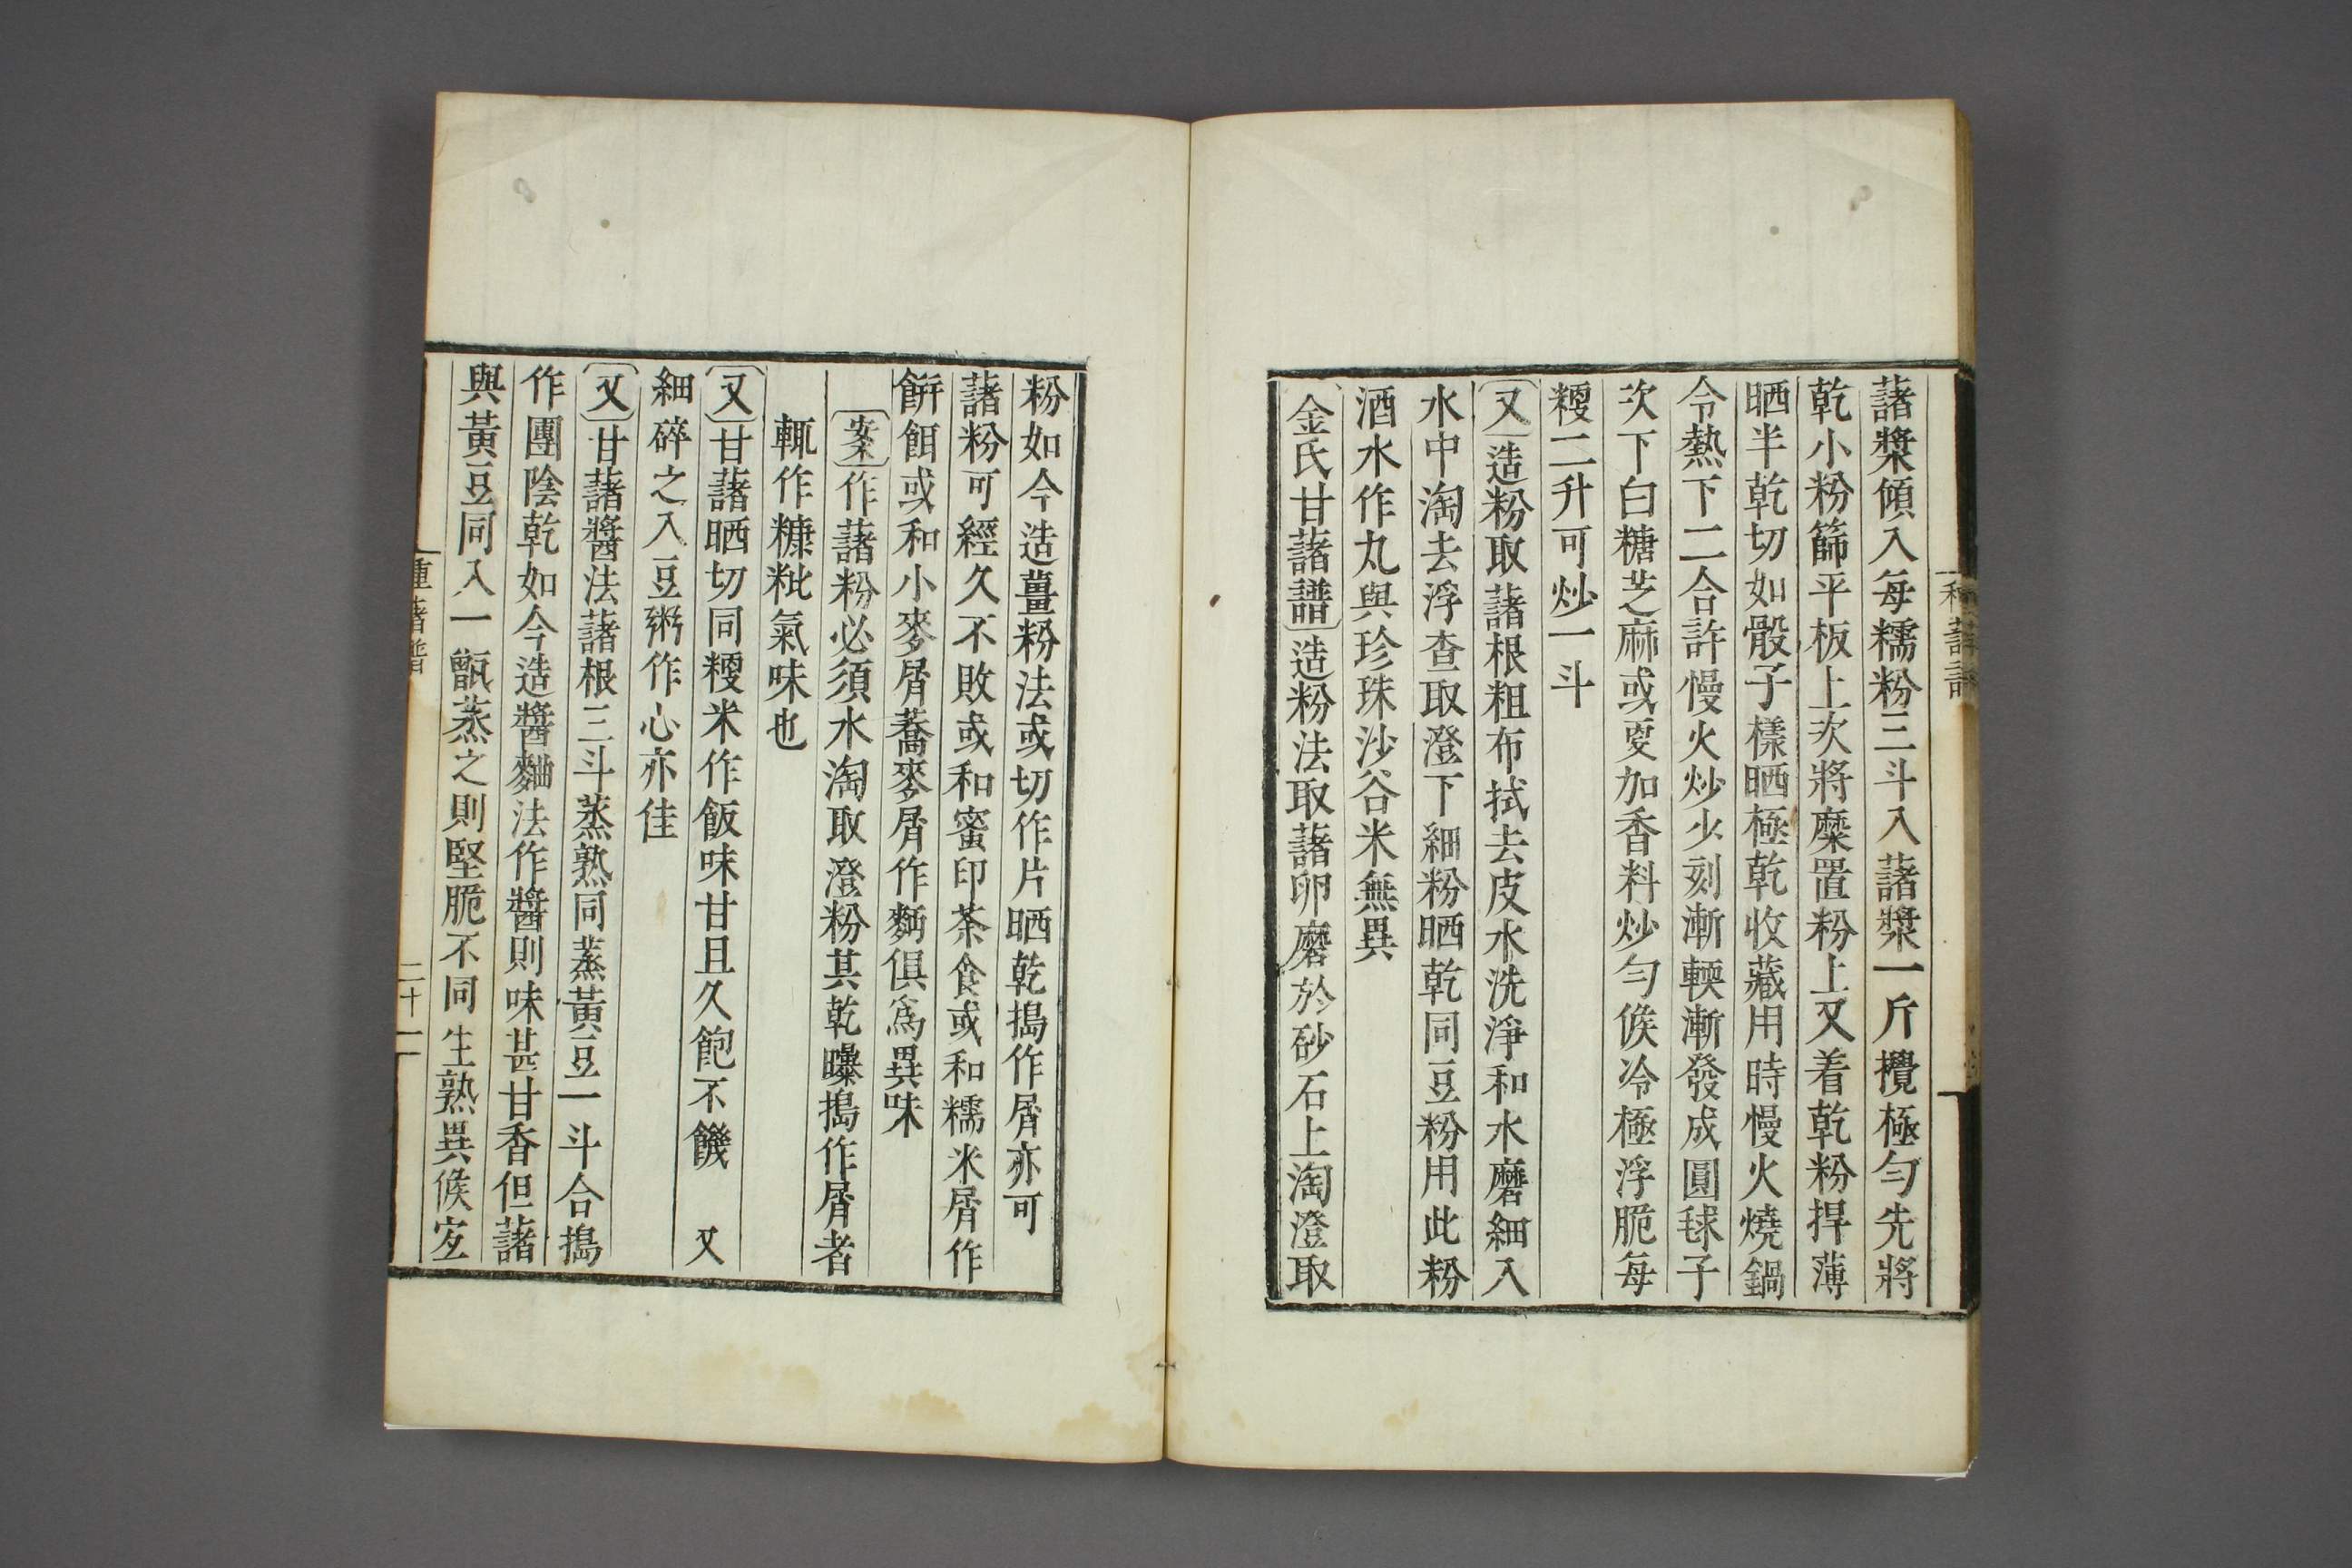 藷漿傾入每糯粉三斗入藷漿一斤攪極勻先將
乾小粉篩平板上次將糜置粉上又着乾粉捍薄
晒半乾切如骰子樣晒極乾收藏用時慢火燒鍋
令熱下二合許慢火炒少刻漸輭漸發成圓毬子
次下白糖芝麻或更加香料炒勻候冷極浮脆每
粳二升可炒一斗
又造粉取藷根粗布拭去皮水洗淨和水磨細入
水中淘去浮查取澄下細粉晒乾同豆粉用此粉
酒水作丸與珍珠沙谷米無異
金氏甘藷譜造粉法取藷卵磨於砂石上淘澄取
粉如今造薑粉法或切作片晒乾搗作屑亦可
藷粉可經久不敗或和蜜印茶食或和糯米屑作
餠餌或和小麥屑蕎麥屑作麪俱爲異味
案作藷粉必須水淘取澄粉其乾曝搗作屑者
輒作糠粃氣味也
又甘藷晒切同粳米作飯味甘且久飽不饑 又
細碎之入豆粥作心亦佳
又甘藷醬法藷根三斗蒸熟同蒸黃豆一斗合搗
作團陰乾如今造醬麯法作醬則味甚甘香但藷
與黃豆同入一甑蒸之則堅脆不同生熟異候宐
種藷譜
二十一